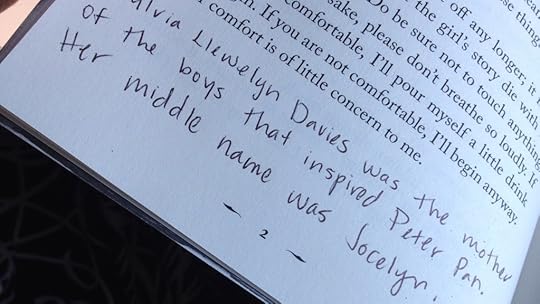 off any longer; it
the girl's story die with
Do be sure not to touch anything
sake, please don't breathe so loudly. If
comfortable, I'll pour myself a little drink
If you are not comfortable, I'll begin anyway.
comfort is of little concern to me.
ylvia Llewelyn Davies was the mother
of the boys that inspired Peter Pan.
Her middle name was Jocelyn.
2